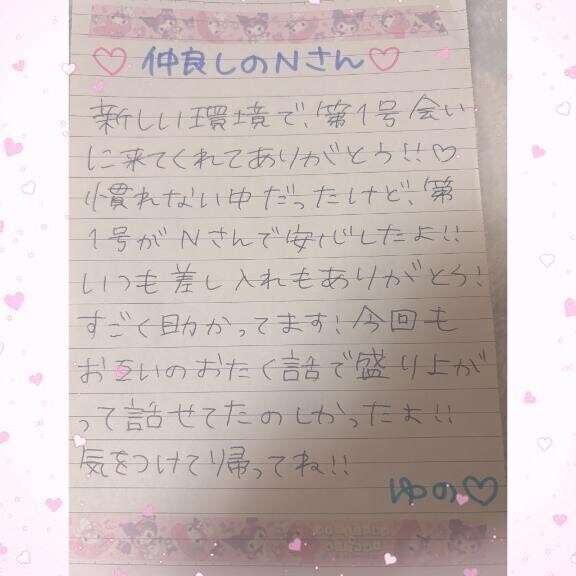 ♡仲良しのNさん♡
新しい環境で、第1号会い
に来てくれてありがとう!!♡
慣れない中だったけど、第
1号がNさんで安心したよ!!
いつも差し入れもありがとう!
すごく助かってます!今回も
お互いのおたく話で盛り上が
って話せてたのしかったよ!!
気をつけて帰ってね!!
ゆの♡